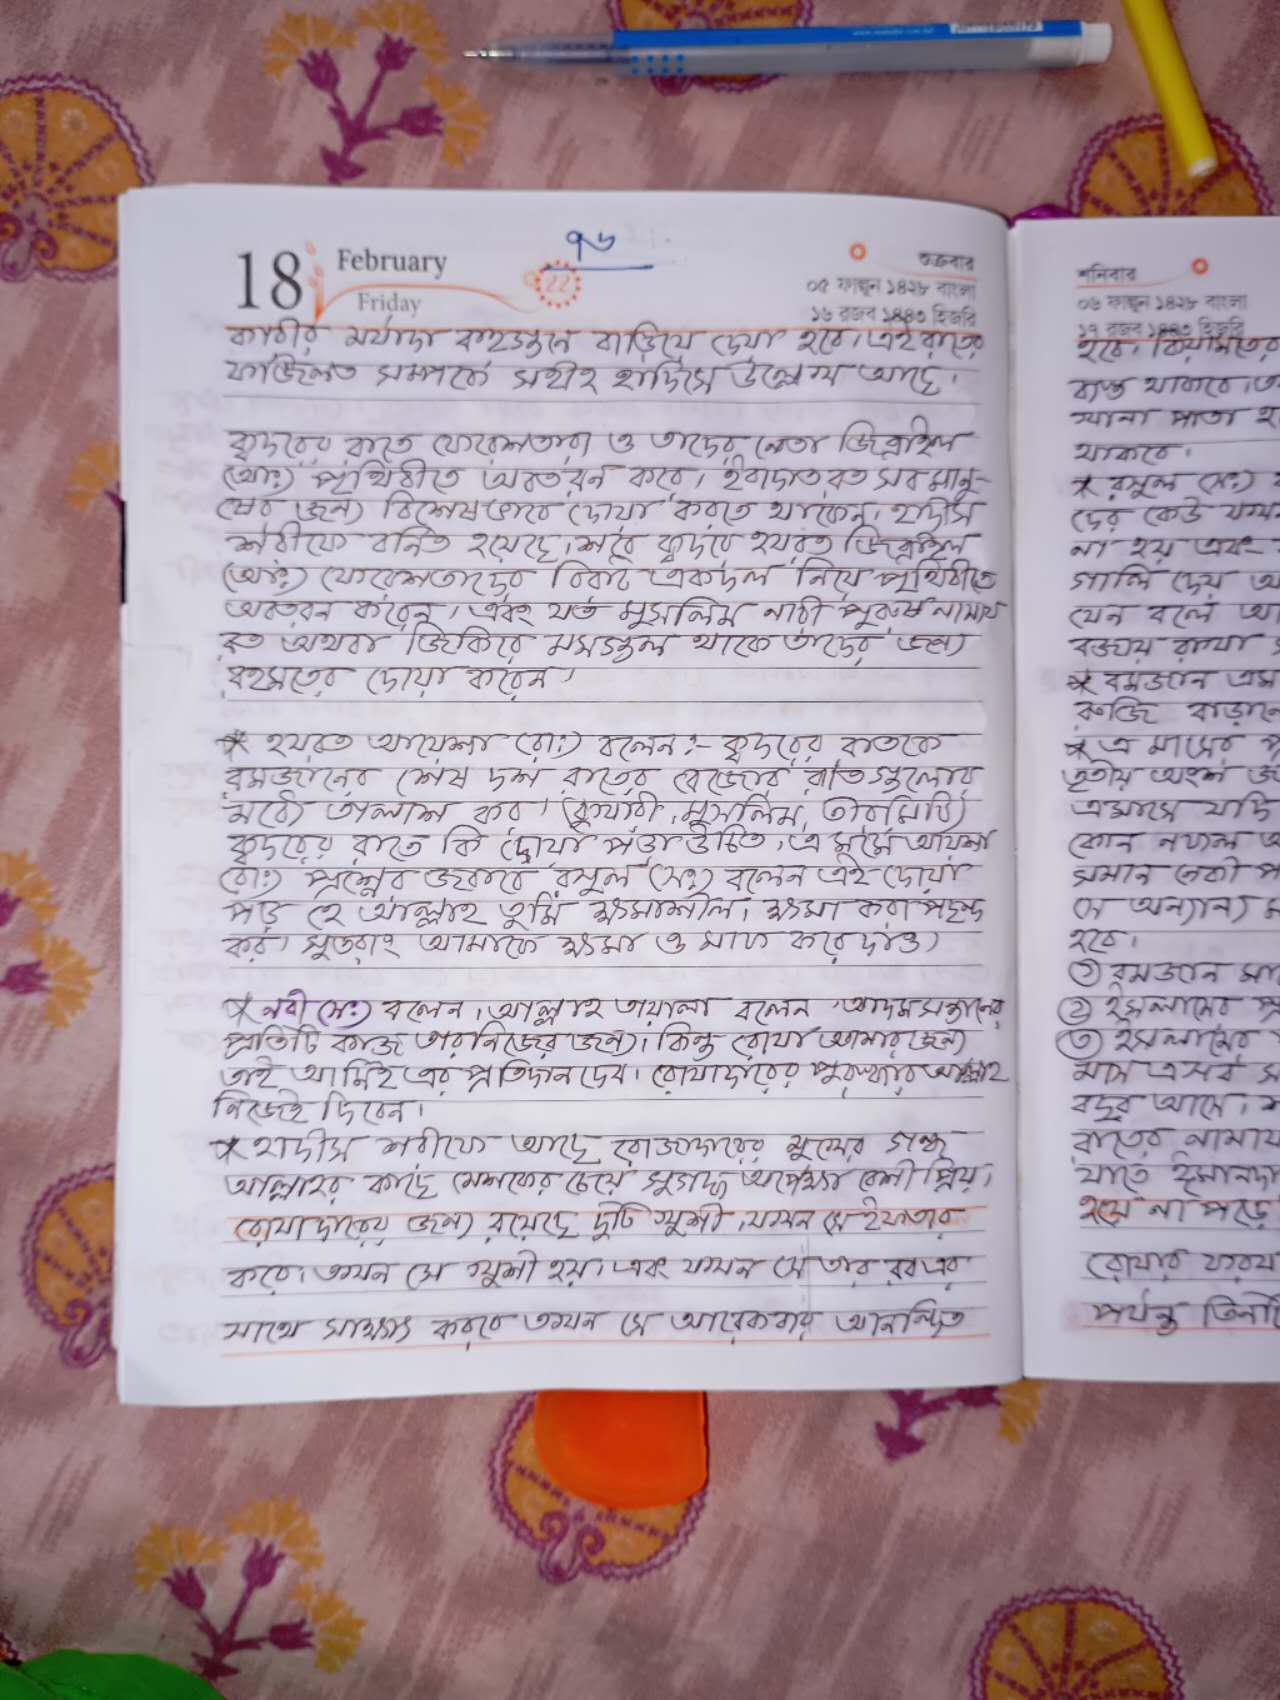 18 February
Friday
22
৭৬
শুক্রবার
০৫ ফাল্গুন ১৪২৮ বাংলা
১৬ রজব ১৪৪৩ হিজরি
কারীর মর্যাদা বহুগুনে বাড়িয়ে দেয়া হবে। এই রাতের
ফাজিলত সম্পর্কে সহীহ হাদিসে উল্লেখ্য আছে।
ক্বদরের রাতে ফেরেশতারা ও তাদের নেতা জিব্রাইল
(আঃ) পৃথিবীতে অবতরন করে। ইবাদাত রত সব মানু-
ষের জন্য বিশেষভাবে দোয়া করতে থাকেন। হাদীস
শরীফে বর্নিত হয়েছে। শবে ক্বদরে হযরত জিব্রাইল
(আঃ) ফেরেশতাদের বিরাট একদল নিয়ে পৃথিবীতে
অবতরন করেন। এবং যত মুসলিম নারী পুরুষ নামায
রত অথবা জিকিরে মসগুল থাকে তাদের জন্য
রহমতের দোয়া করেন।
* হযরত আয়েশা (রাঃ) বলেন:- ক্বদরের রাতকে
রমজানের শেষ দশ রাতের বেজোর রাতগুলোর
মধ্যে তালাশ কর। (বুখারী, মুসলিম, তীরমিযি)
ক্বদরের রাতে কি দোয়া পড়া উচিত, এ মর্মে আয়শা
(রাঃ) প্রশ্নের জবাবে রসুল (সঃ) বলেন এই দোয়া
পড় হে আল্লাহ তুমি ক্ষমাশীল। ক্ষমা করা পছন্দ
কর। সুতরাং আমাকে ক্ষমা ও মাফ করে দাও।
* নবী (সঃ) বলেন, আল্লাহ তায়ালা বলেন, আদম সন্তানের
প্রতিটি কাজ তার নিজের জন্য। কিন্তু রোযা আমার জন্য
তাই আমিই এর প্রতিদান দেব। রোযাদারের পুরস্কার আল্লাহ
নিজেই দিবেন।
* হাদীস শরীফে আছে রোজাদারের মুখের গন্ধ
আল্লাহর কাছে মেশকের চেয়ে সুগন্ধ অপেক্ষা বেশী প্রিয়।
রোযাদারের জন্য রয়েছে দুটি খুশী, যখন সে ইফতার
করে। তখন সে খুশী হয়। এবং যখন সে তার রব এর
সাথে সাক্ষাৎ করবে তখন সে আরেকবার আনন্দিত
শনিবার
০৬ ফাল্গুন ১৪২৮ বাংলা
১৭ রজব ১৪৪৩ হিজরি
হবে। কিয়ামতের
ব্যস্ত থাকবে।
খানা পাতা
থাকবে।
* রসুল (সঃ)
দের কেউ যখন
না হয় এবং
গালি দেয়
যেন বলে
বজায় রাখা
* রমজান এম
রুজি বাড়ানো
* এ মাসের
তৃতীয় অংশ
এমাসে যদি
কোন নফল
সমান নেকী
সে অন্যান্য
হবে।
① রমজান
② ইসলামের
③ ইসলামের
মাস এসব
বছর আসে।
রাতের নামায
যাতে ঈমানদা
হয়ে না পড়ে
রোযার ফরয
পর্যন্ত তিনটি